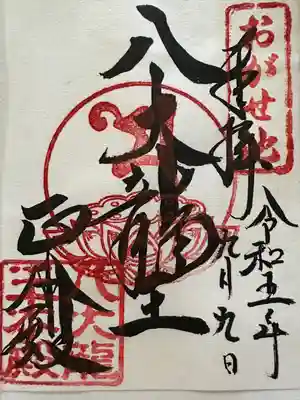 おがせ池
奉拝
令和五年
九月九日
八大龍王
正殿
八大龍
王殿